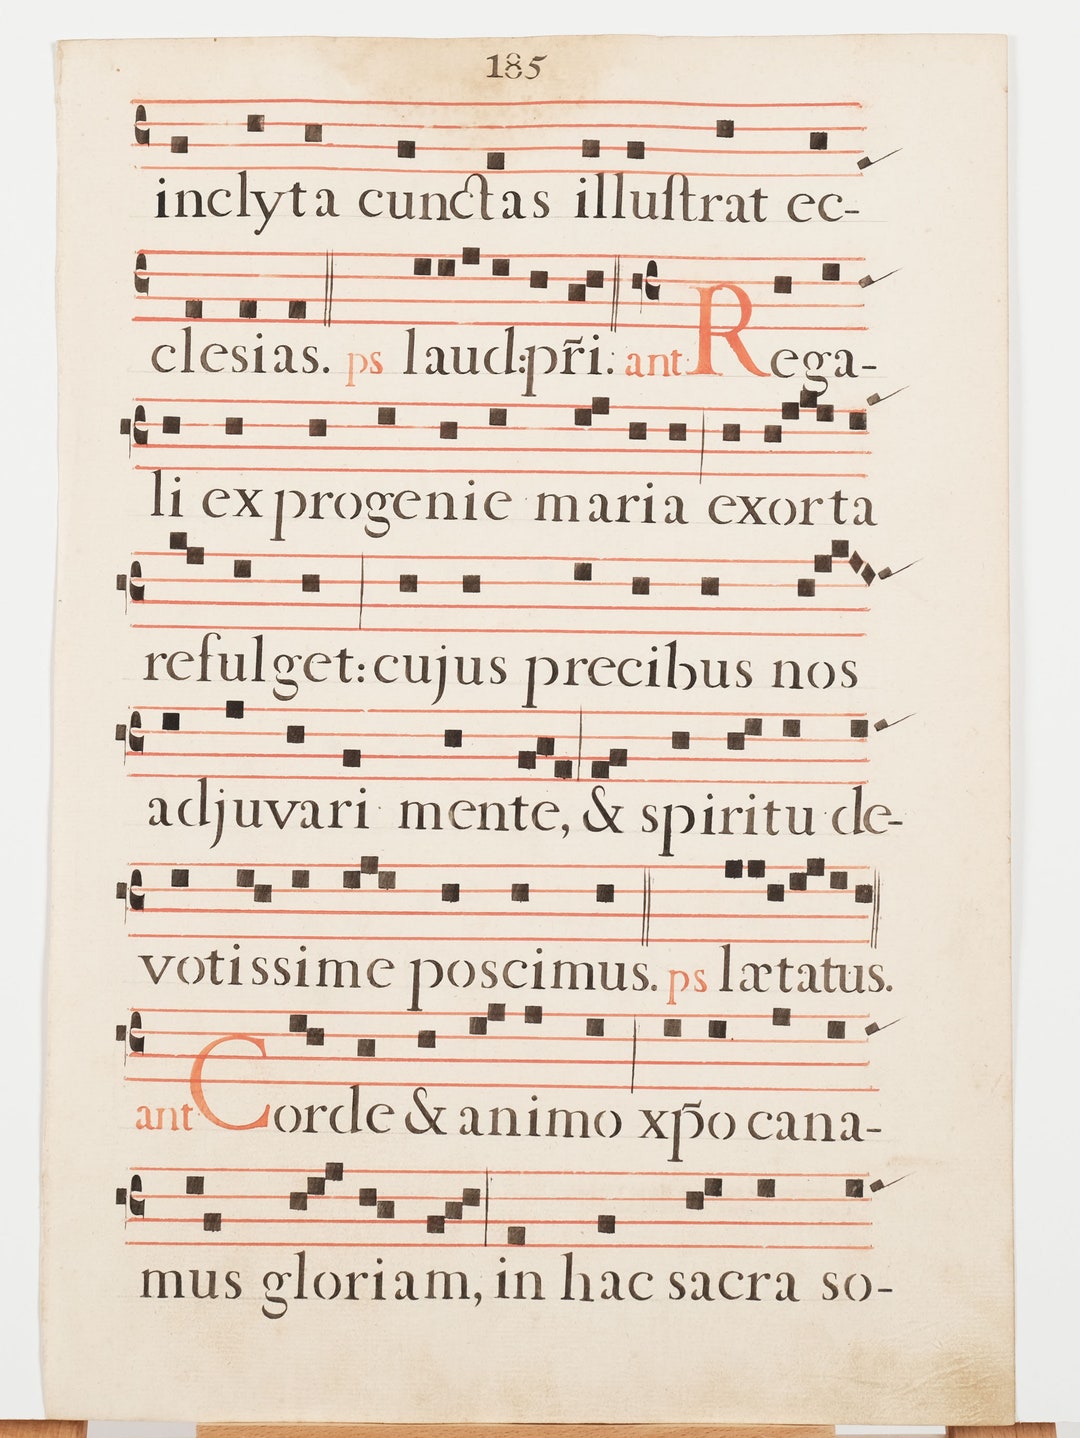 185
inclyta cunctas illuſtrat ec-
clesias. ps laud:pr̃i: ant Rega-
li ex progenie maria exorta
refulget: cujus precibus nos
adjuvari mente, & spiritu de-
votissime poscimus. ps lætatus.
ant Corde & animo xp̃o cana-
mus gloriam, in hac sacra so-